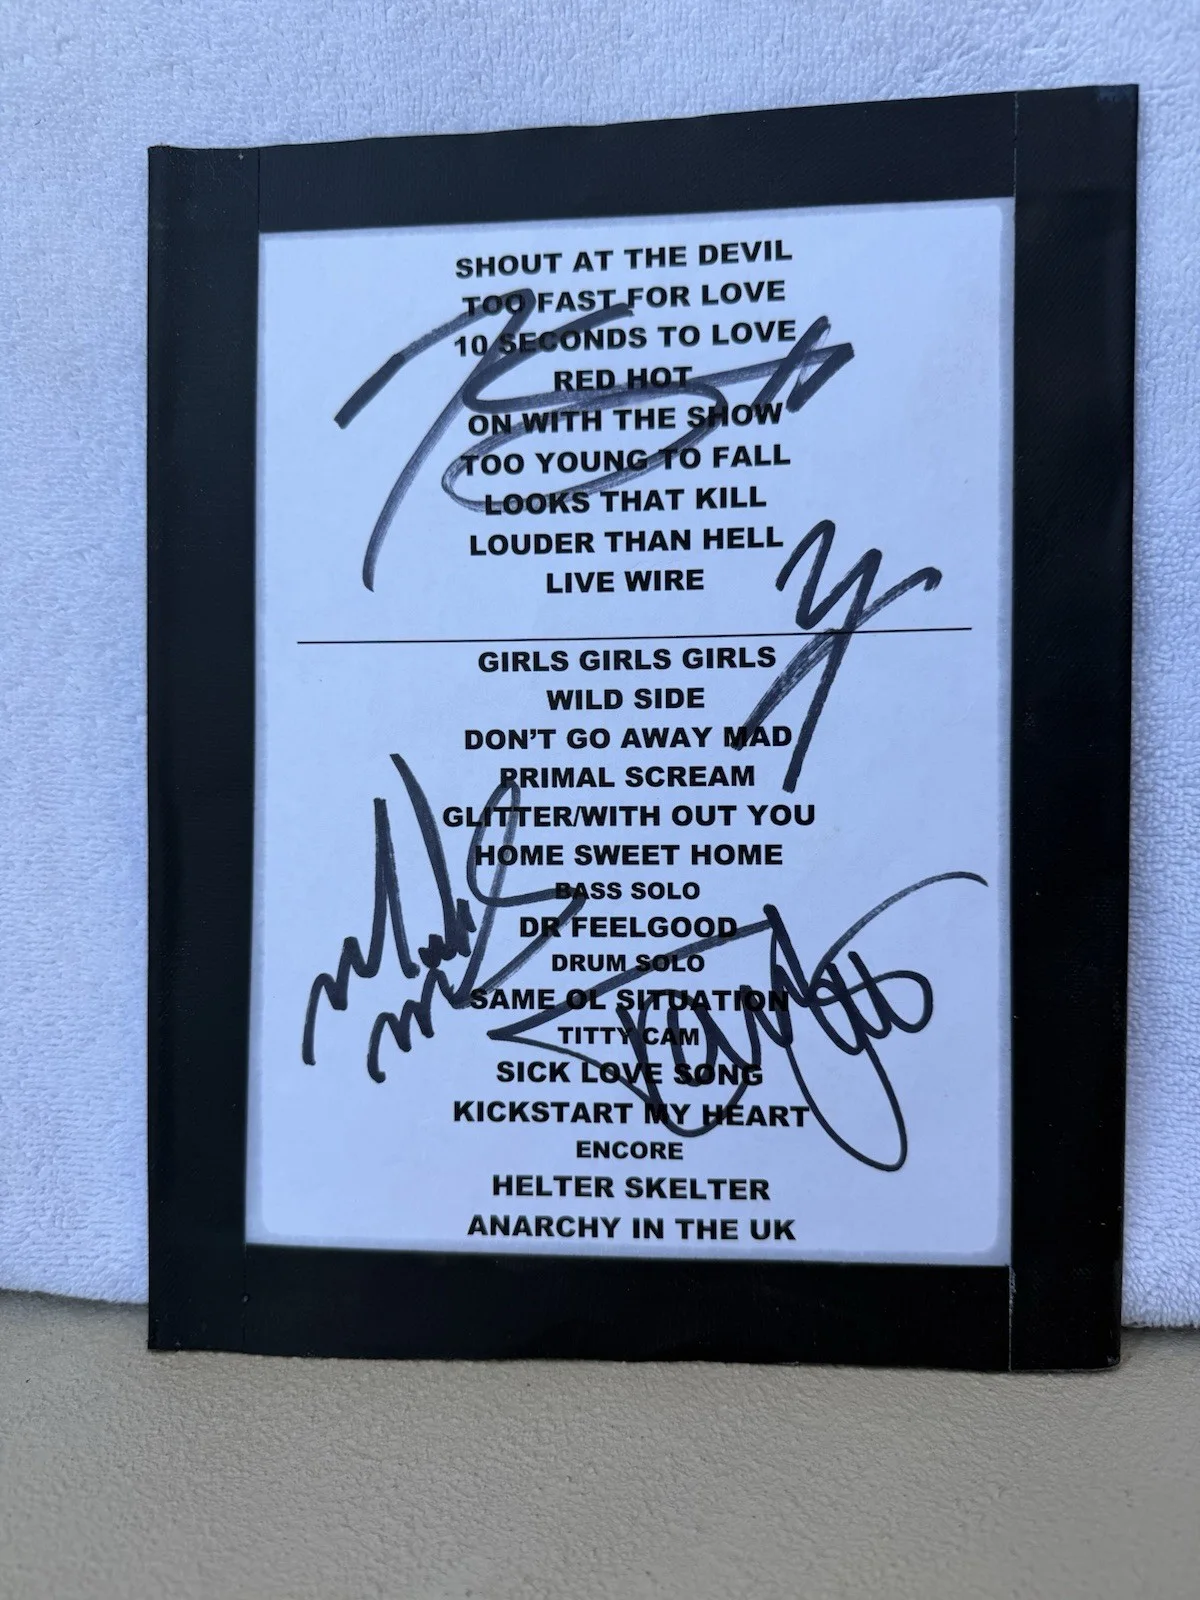 SHOUT AT THE DEVIL
TOO FAST FOR LOVE
10 SECONDS TO LOVE
RED HOT
ON WITH THE SHOW
TOO YOUNG TO FALL
LOOKS THAT KILL
LOUDER THAN HELL
LIVE WIRE
GIRLS GIRLS GIRLS
WILD SIDE
DON'T GO AWAY MAD
PRIMAL SCREAM
GLITTER/WITH OUT YOU
HOME SWEET HOME
BASS SOLO
DR FEELGOOD
DRUM SOLO
SAME OL SITUATION
TITTY CAM
SICK LOVE SONG
KICKSTART MY HEART
ENCORE
HELTER SKELTER
ANARCHY IN THE UK